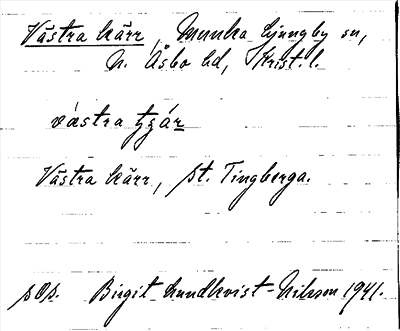 Västra kärr, Munka Ljungby sn,
N. Åsbo hd, Krist. l.
västra tjär
Västra kärr, st. Tingberga.
Birgit Lundkvist-Nilsson 1941.